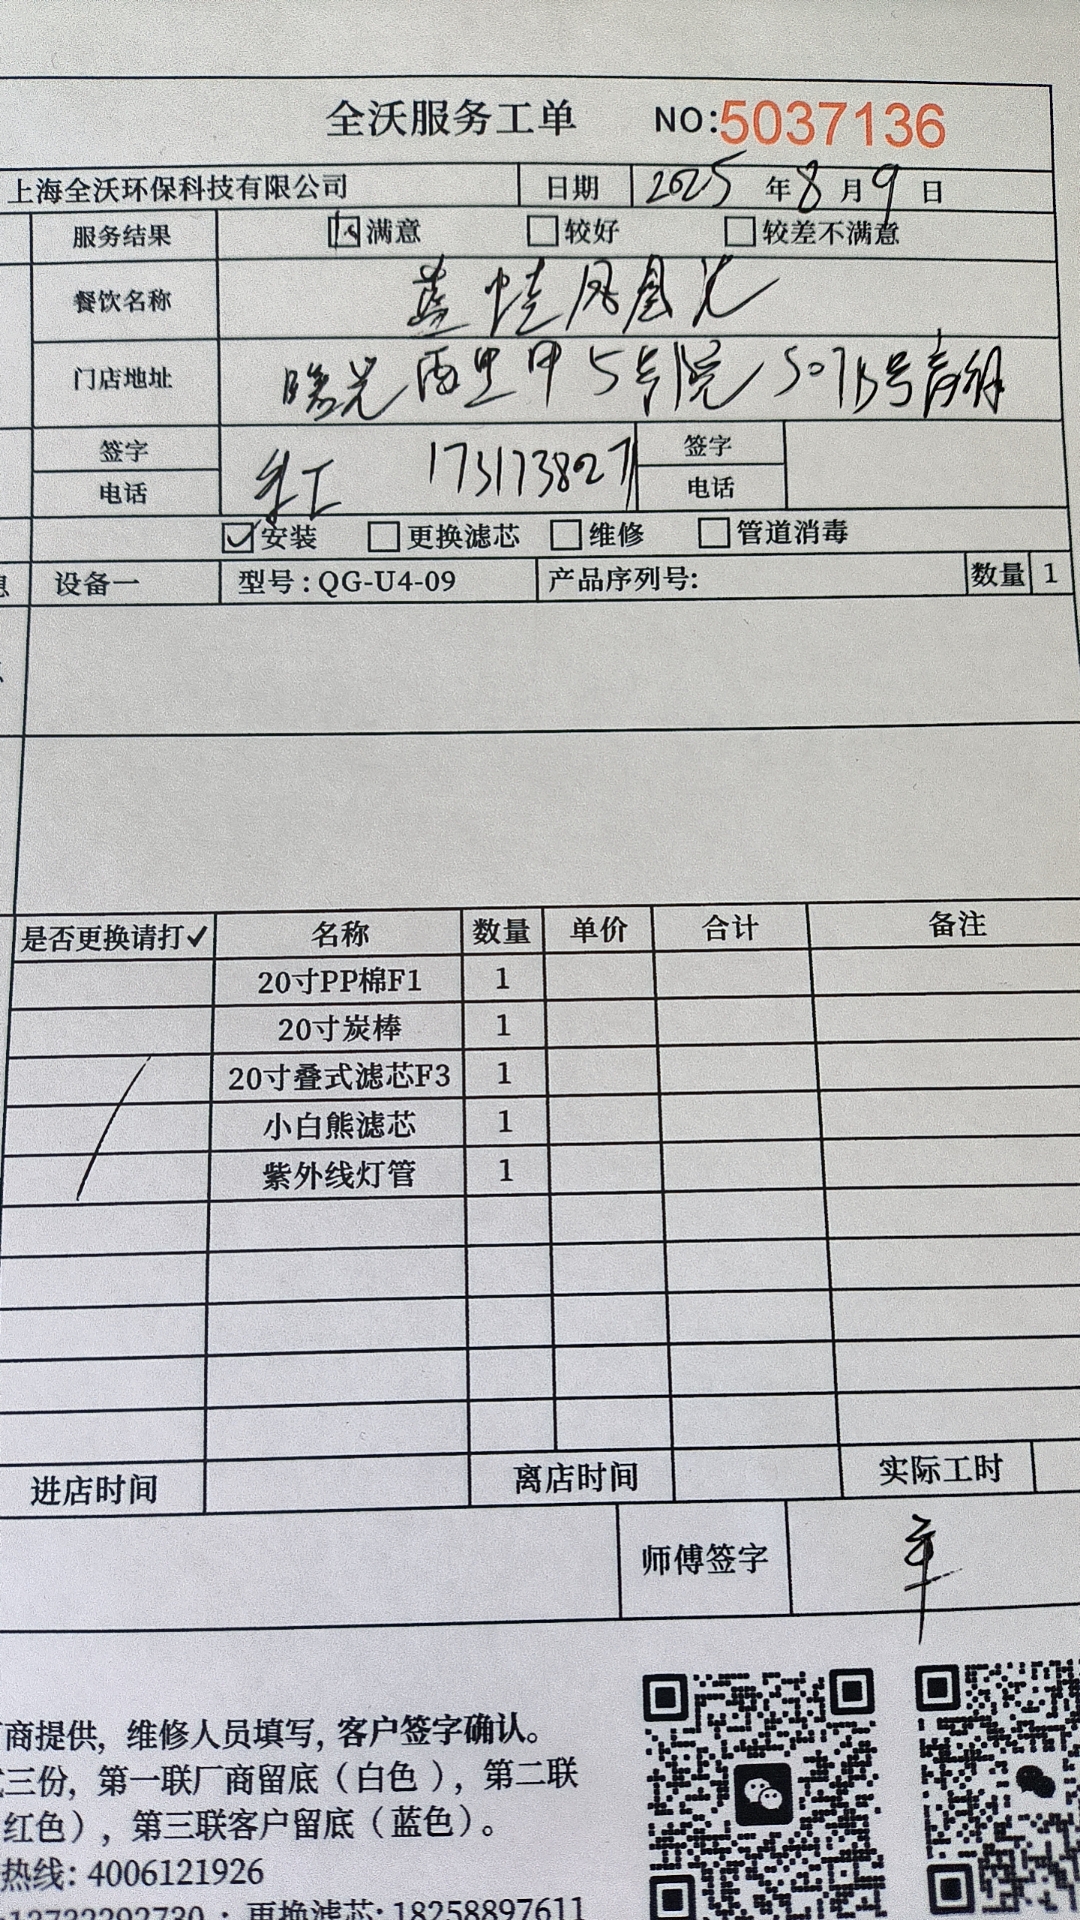 全沃服务工单 NO:5037136
上海全沃环保科技有限公司 日期 2025年8月9日
服务结果 满意 较好 较差不满意
餐饮名称 蓝蛙凤凰汇
门店地址 曙光西里甲5号院
签字 签字
电话 电话
安装 更换滤芯 维修 管道消毒
设备一 型号:QG-U4-09 产品序列号: 数量 1
是否更换请打✓ 名称 数量 单价 合计 备注
20寸PP棉F1 1
20寸炭棒 1
20寸叠式滤芯F3 1
小白熊滤芯 1
紫外线灯管 1
进店时间 离店时间 实际工时
师傅签字
商提供, 维修人员填写, 客户签字确认。
三份, 第一联厂商留底(白色), 第二联
红色), 第三联客户留底(蓝色)。
热线: 4006121926
更换滤芯: 18258897611